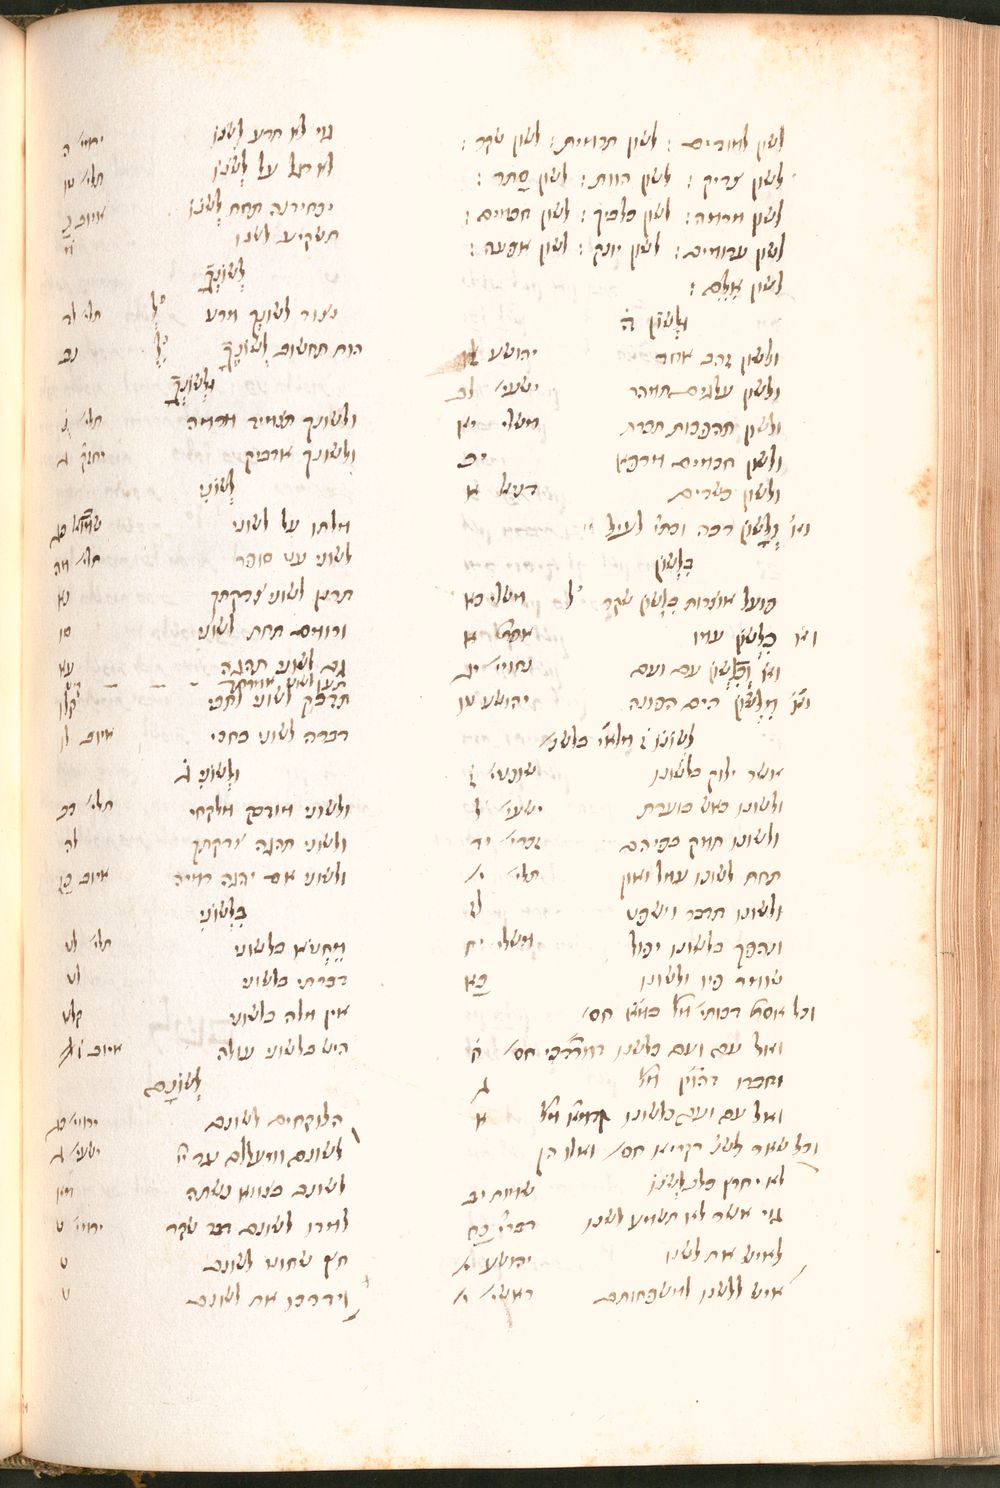 לשון למודים : לשון תרמית : לשון שקר :
לשון צדיק : לשון הוות : לשון סתר :
לשון מרמה : לשון כלביך : לשון חכמים :
לשון ערומים : לשון יונק : לשון אפעה :
לשון אִלֵּם :
וּלְשׁוֹן ה'
ולשון זהב אחד יהושע
ולשון עלגים תמהר ישעי' לב
ולשון תהפכות תכרת משלי י
ולשון חכמים מרפא יב
ולשון כשדים דניאל א
וא' וְלָשׁוֹן רכה וכתי' לעיל
בִּלְשׁוֹן
פועל אוצרות בִּלְשׁוֹן שקר ל' משלי כא
וא' כִּלְשׁוֹן עמו אסתר א
וא' וְכִלְשׁוֹן עם ועם נחמי' יג
וא' מִלְּשׁוֹן הים הפונה יהושע טו
לְשׁוֹנוֹ מלאי' בלשנ'
אשר ילוק בלשונו שופטי' ז
ולשונו כאש בוערת ישעי' ל
ולשונו תמק בפיהם זכרי' יד
תחת לשונו עמל ואון תלי' י
ולשונו תדבר וישפט לז
ונהפך בלשונו יפול משלי יז
שומר פיו ולשונו כא
וכל אסתר דכותי' מל' חס'
ומל' עם ועם כלשנו חס'
וחברו מל' ג
ומל' עם ועם כלשונו מל' א
וכל שאר לשנ' דקריא' חס' ואלו הן
לא יחרץ כלב לְשׁוֹנוֹ שמות יב
גוי אשר לא תשמע לשנו דברי' כח
לאיש את לשנו יהושע י
איש ללשנו למשפחותם בראשי' י
גוי לא תדע לשנו ירמי' ה
לא רגל על לְשׁוֹנוֹ תלי' טו
יכחידנה תחת לְשׁוֹנוֹ איוב כ
תשקיע לשנו מ
לְשׁוֹנְךָ
נצור לשונך מרע ל' תלי' לד
הוות תחשוב לְשׁוֹנֶךָ ל' נב
וּלְשׁוֹנְךָ
ולשונך תצמיד מרמה תלי' נ
ולשונך אדביק יחזק' ג
לְשׁוֹנִי
מלתו על לשוני שמואל כג
לשוני עט סופר תלי' מה
תרנן לשוני צדקתך נא
ורומם תחת לשוני סו
גם לשוני תהגה עא
תען לשוני אמרתך
תדבק לשוני לחכי קלז
דברה לשוני בחכי איוב לג
וּלְשׁוֹנִי ג'
ולשוני מודבק מלקחי תלי' כב
ולשוני תהגה צדקתך לה
ולשוני אם יהגה רמיה איוב כז
בִּלְשׁוֹנִי
מֵחֲטוֹא בלשוני תלי' לט
דברתי בלשוני לט
אין מלה בלשוני קלט
היש בלשוני עולה איוב ו
לְשׁוֹנָם
הלוקחים לשונם ירמי' כג
לשונם ומעללם ישעי' ג
לשונם בצמא נשתה מא
למדו לשונם דבר שקר ירמי' ט
חץ שחוט לשונם ט
וידרכו את לשונם ט